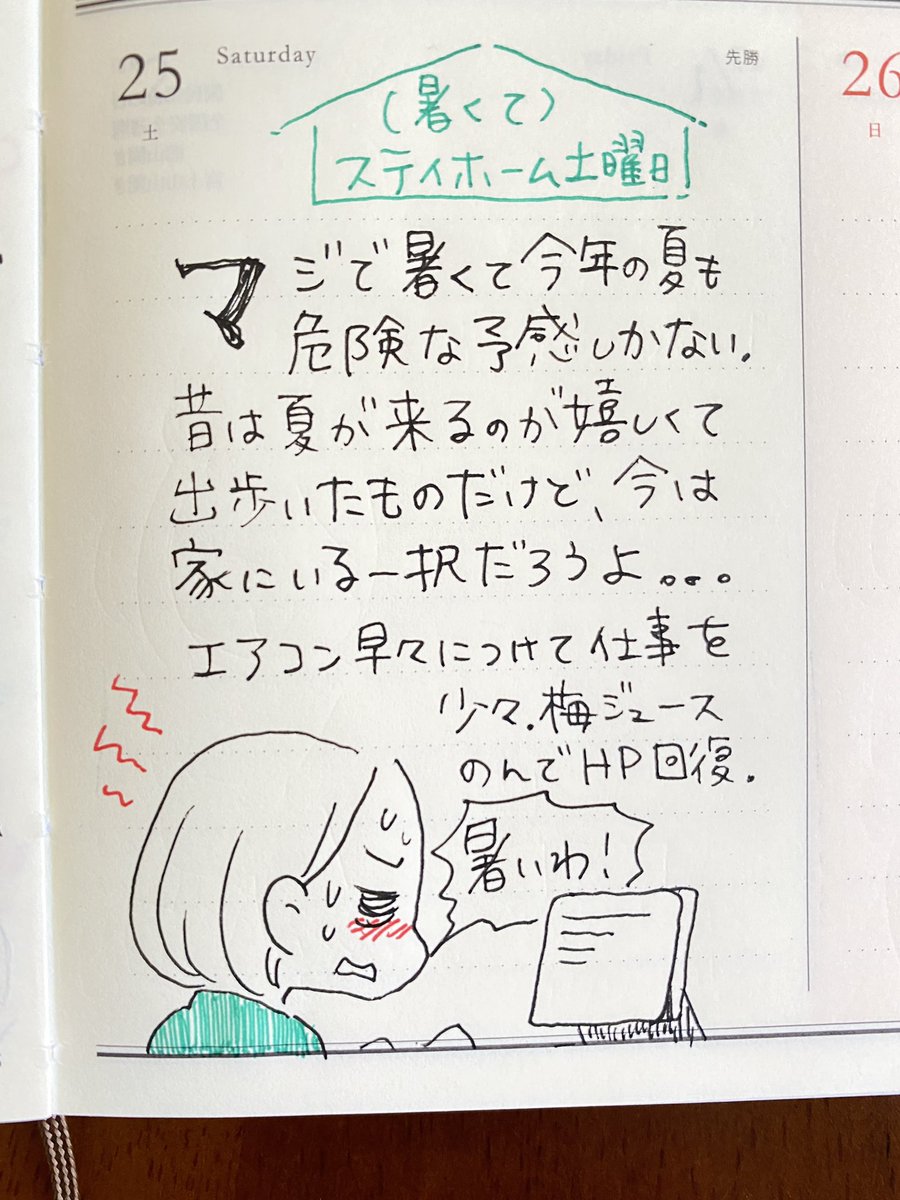 25 Saturday 先勝
土
26
日
(暑くて)
ステイホーム土曜日
マジで暑くて今年の夏も
危険な予感しかない.
昔は夏が来るのが嬉しくて
出歩いたものだけど、今は
家にいる一択だろうよ...
エアコン早々につけて仕事を
少々.梅ジュース
のんでHP回復.
暑いわ!